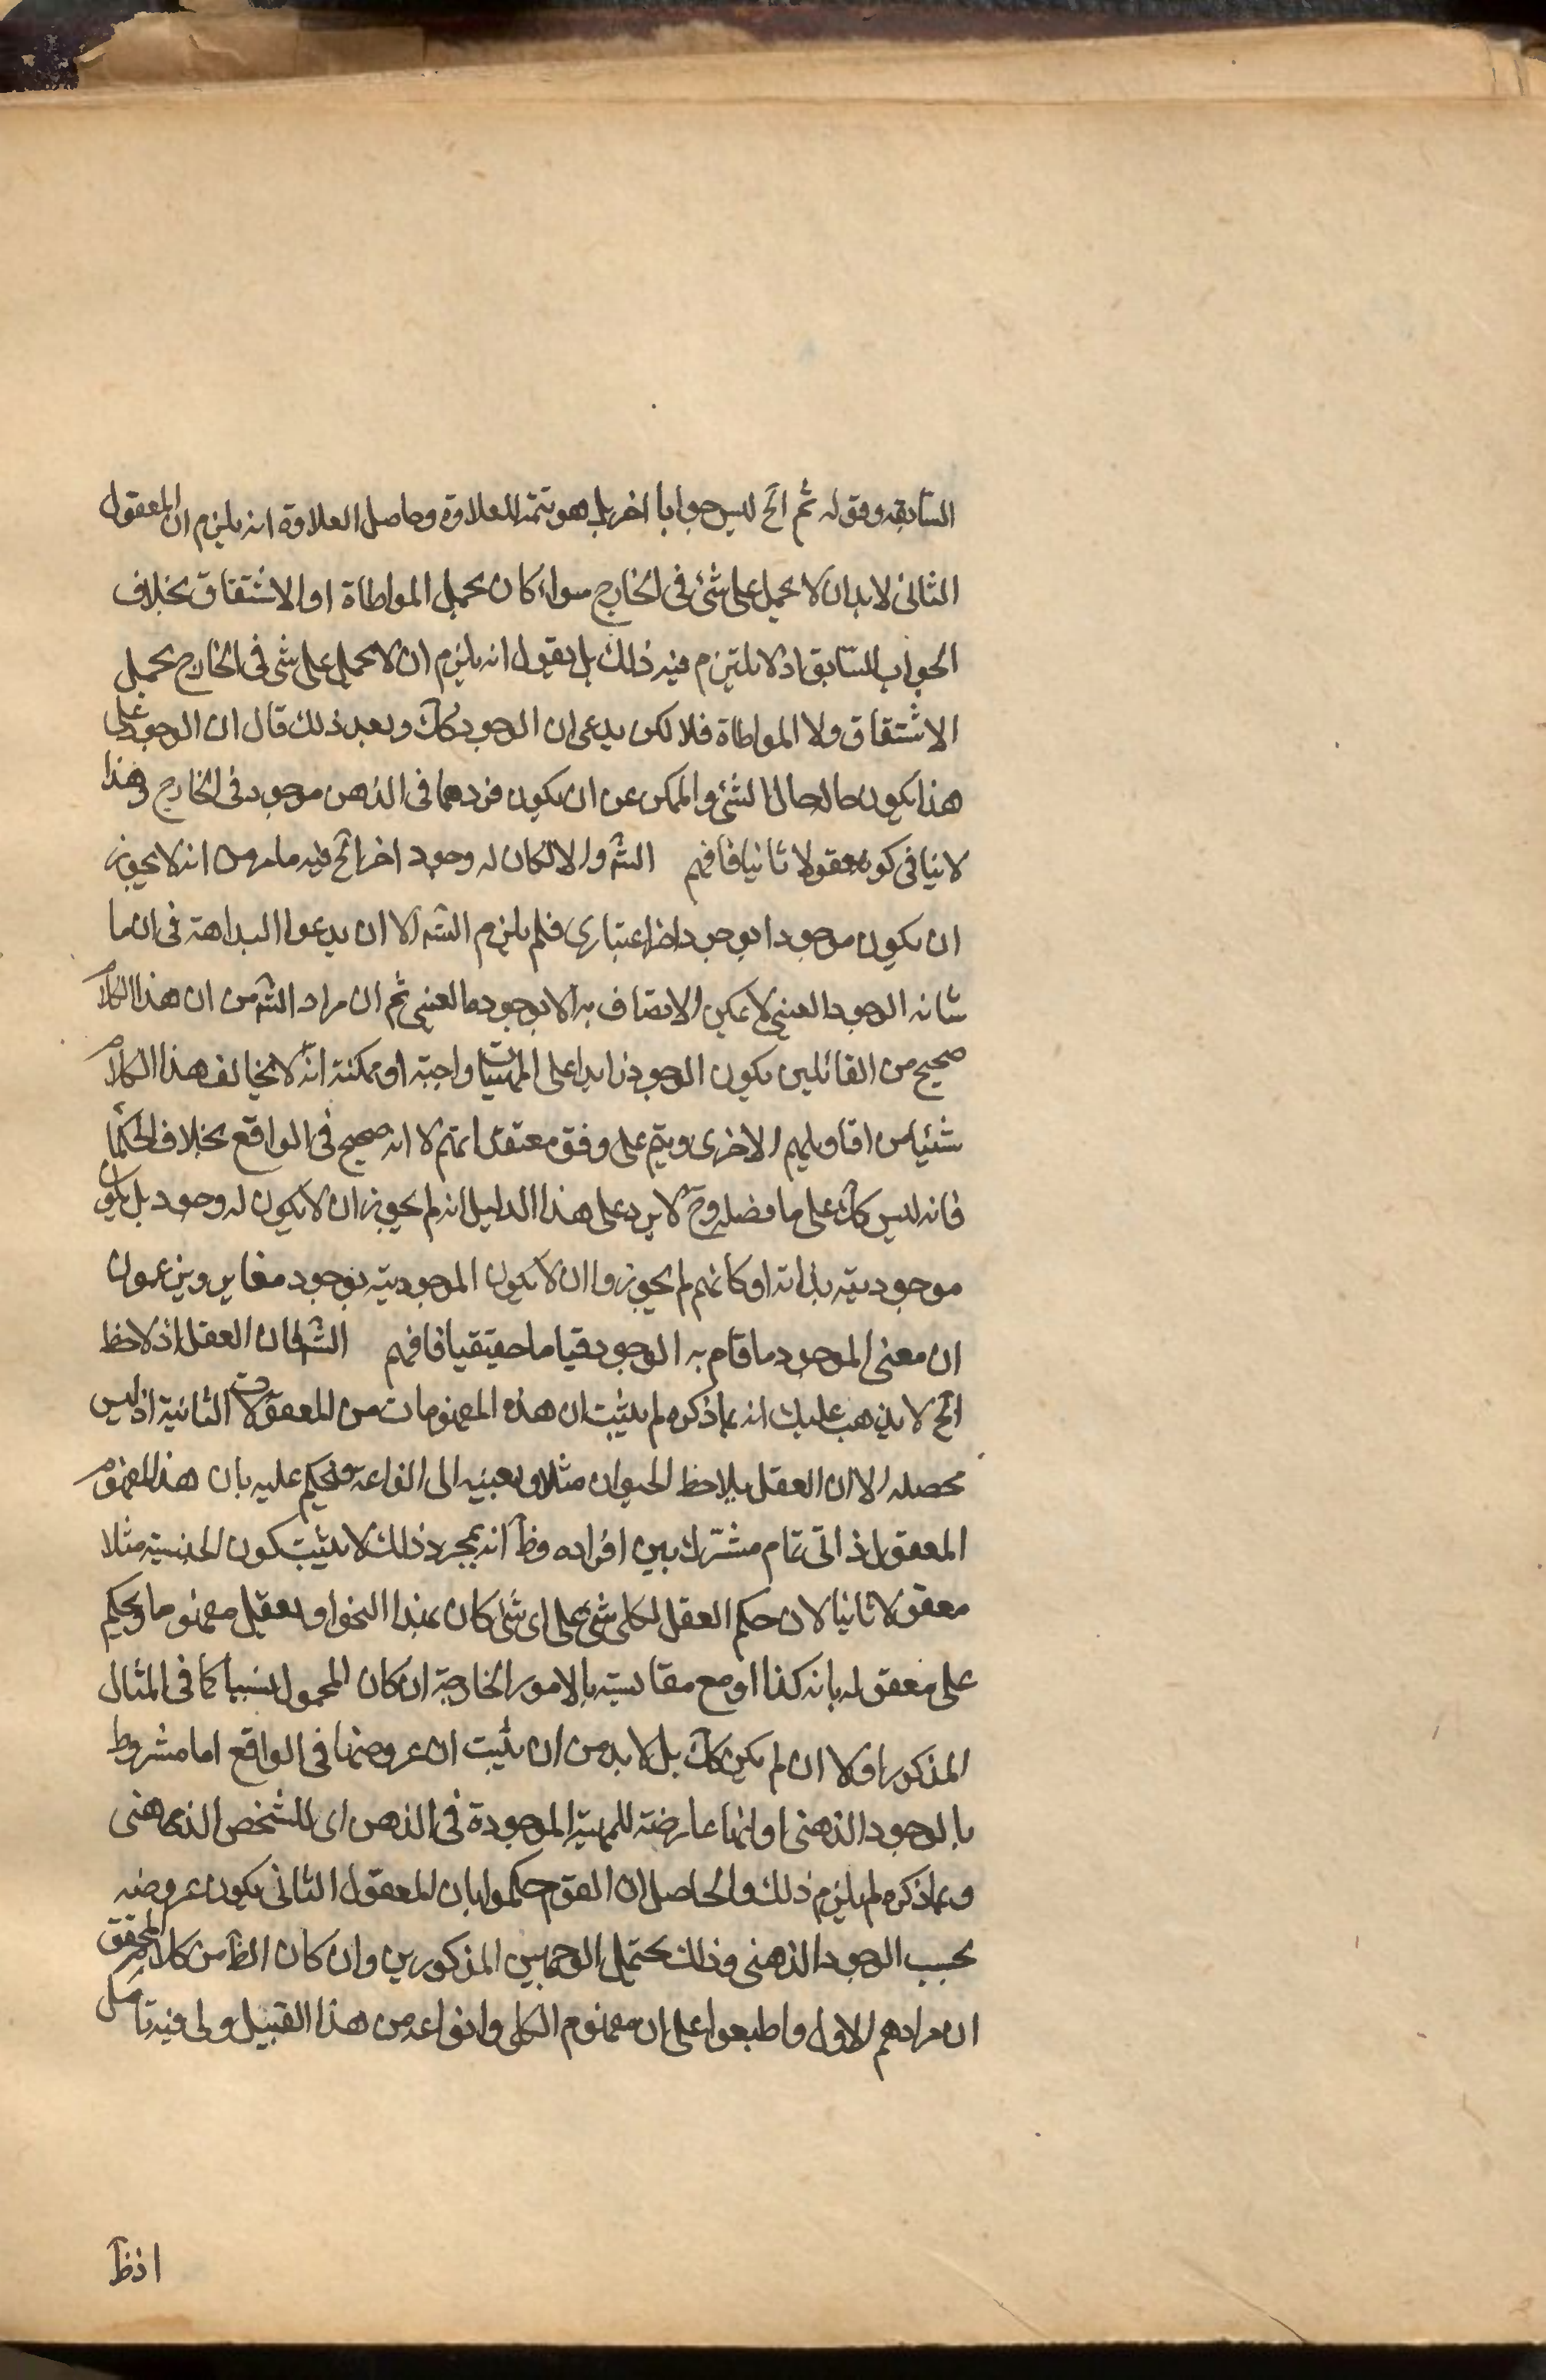 السابقه وقوله ثم الخ ليس جوابا اخر بل هو تتمة للعلاوة وحاصل العلاوة انه يلزم ان المعقول
الثانى لا بد ان لا يحمل على شئ فى الخارج سواء كان بحمل المواطاة او الاشتقاق بخلاف
الجواب السابق اذ لا يلتزم فيه ذلك بل يقول انه يلزم ان لا يحمل على شئ فى الخارج بحمل
الاشتقاق ولا المواطاة فلا لكن يدعى ان الوجود كك وبعد ذلك قال ان الوجود على
هذا يكون حاله حال الشئ والممكن عن ان يكون فردهما فى الذهن موجود فى الخارج وهذا
لا ينافى كونه معقولا ثانيا فافهم الشه والا لكان له وجود اخر الخ فيه ما مر من انه لا يجوز
ان يكون موجودا بوجود اخر اعتبارى فلم يلزم التسه الا ان يدعوا البداهة فى ان ما
شانه الوجود العينى لا يمكن الاتصاف به الا بوجوده العينى ثم ان مراد الشه من ان هذا الكلام
صحيح من القائلين بكون الوجود زايدا على المهيات واجبة او ممكنة انه لا يخالف هذا الكلام
شيئا من اقاويلهم الاخرى ويتم على وفق معتقداتهم لا انه صحيح فى الواقع بخلاف الحكماء
فانه ليس كك على ما فصله وح لا يرد على هذا الدليل انه لم يجوز ان لا يكون له وجود بل يكون
موجوديته بذاته او كانهم لم يجوزوا ان لا يكون الموجودية بوجود مغاير ويزعمون
ان معنى الموجود ما قام به الوجود قياما حقيقيا فافهم الشه فان العقل اذ لاحظ
الخ لا يذهب عليك انه بما ذكره لم يثبت ان هذه المفهومات من المعقولات الثانية اذ ليس
محصله الا ان العقل يلاحظ الحيوان مثلا ويعينه الى انواعه فيحكم عليه بان هذا المفهوم
المعقول ذاتى تمام مشترك بين افراده وظ انه بمجرد ذلك لا يثبت كون الجنسية مثلا
معقولا ثانيا لان حكم العقل لكل شئ على اى شئ كان بهذا النحو او يعقل مفهوما ويحكم
على معقوله بانه كذا او مع مقايسته بالامور الخارجية ان كان المحمول نسبيا كما فى المثال
المذكور او لا ان لم يكن كك بل لا بد من ان يثبت ان عروضها فى الواقع اما مشروط
بالوجود الذهنى او انها عارضة للمهية الموجودة فى الذهن اى للشخص الذهنى
وبما ذكره لم يلزم ذلك والحاصل ان القوم حكموا بان المعقول الثانى يكون عروضه
بحسب الوجود الذهنى وذلك يحتمل الوجهين المذكورين وان كان الظ من كلام المحقق
ان مرادهم الاول واطبعوا على ان مفهوم الكلى وانواعه من هذا القبيل ولى فيه تامل
اذ ظ